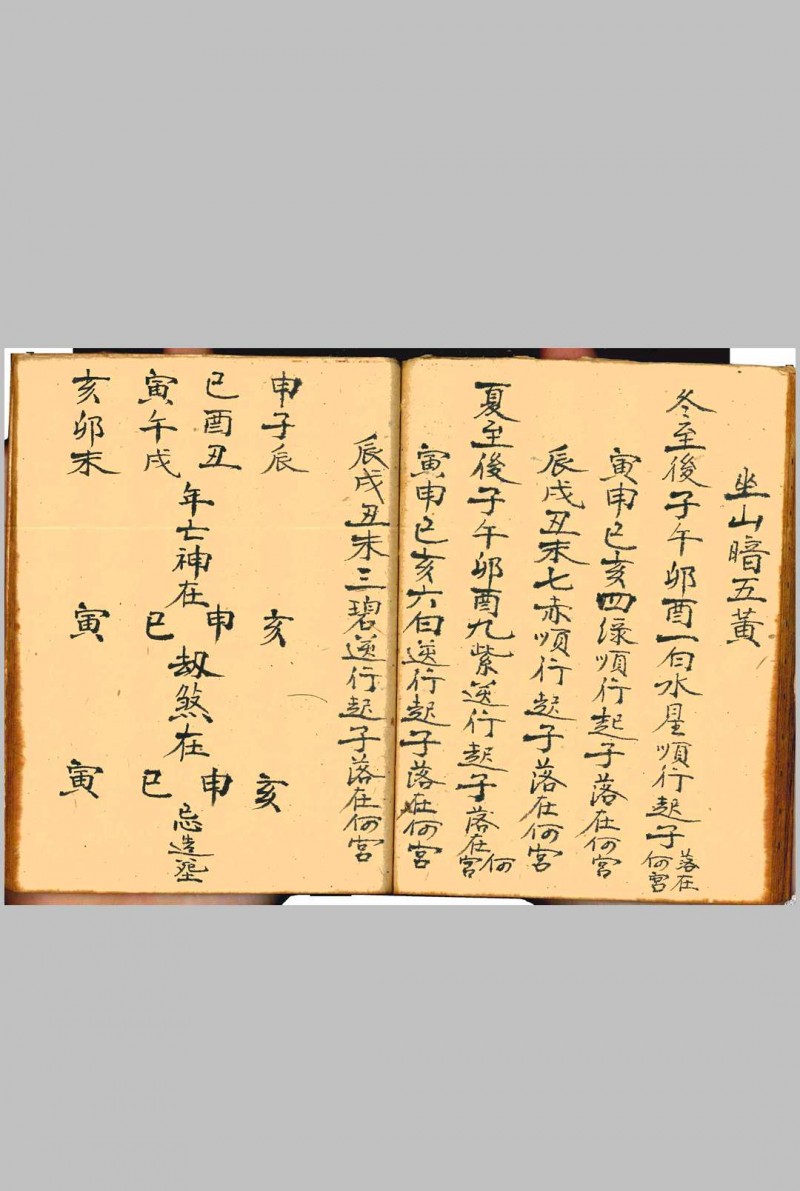 坐山暗五黃
冬至後子午卯酉一白水星順行起子落在何宮
寅申巳亥四綠順行起子落在何宮
辰戌丑未七赤順行起子落在何宮
夏至後子午卯酉九紫逆行起子落在何宮
寅申巳亥六白逆行起子落在何宮
辰戌丑未三碧逆行起子落在何宮
申子辰
巳酉丑
寅午戌
亥卯未
年亡神在
亥
申
巳
寅
刼煞在
亥
申
巳
寅
忌造塟